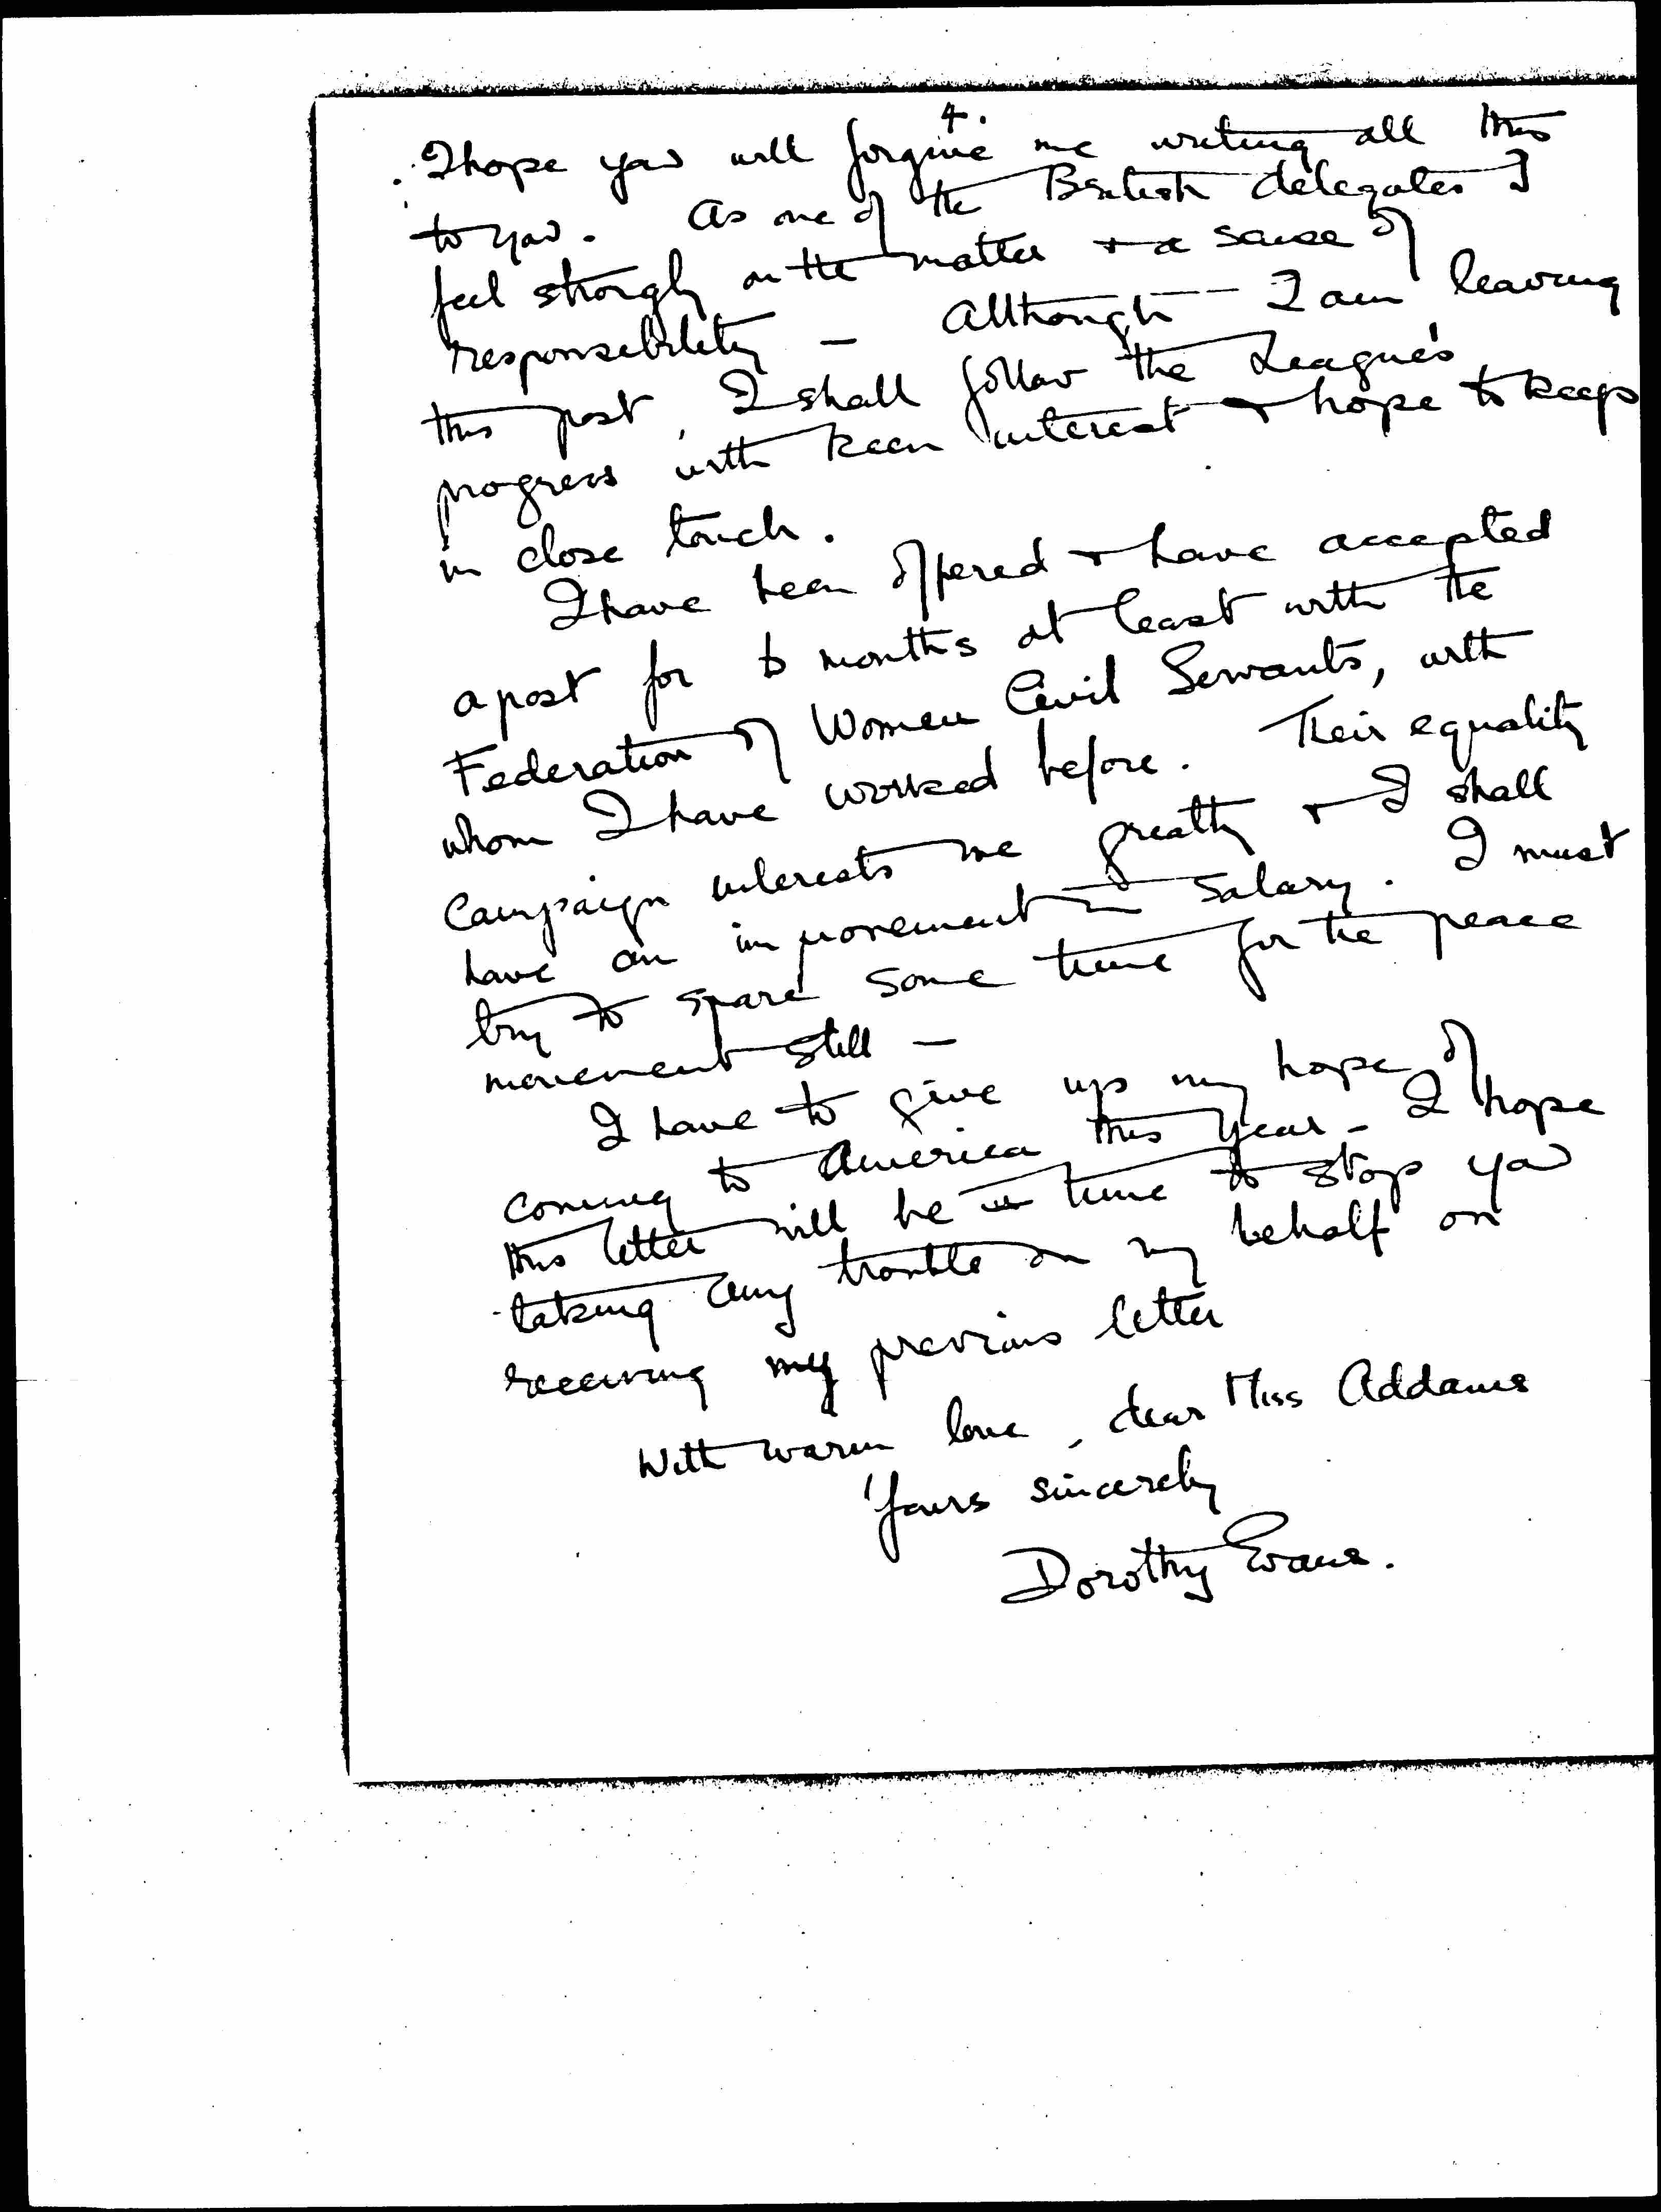 4.
I hope you will forgive me writing all this
to you. As one of the British delegates I
feel strongly on the matter & a sense of
responsibility – Although I am leaving
this post, I shall follow the League's
progress with keen interest & hope to keep
in close touch.
I have been offered & have accepted
a post for 6 months at least with the
Federation of Women Civil Servants, with
whom I have worked before. Their equality
Campaign interests me greatly & I shall
have an improvement in salary. I must
try to spare some time for the peace
movement still –
I have to give up my hope of
coming to America this year – I hope
this letter will be in time to stop you
taking any trouble on my behalf on
receiving my previous letter
With warm love, dear Miss Addams
Yours sincerely
Dorothy Evans.